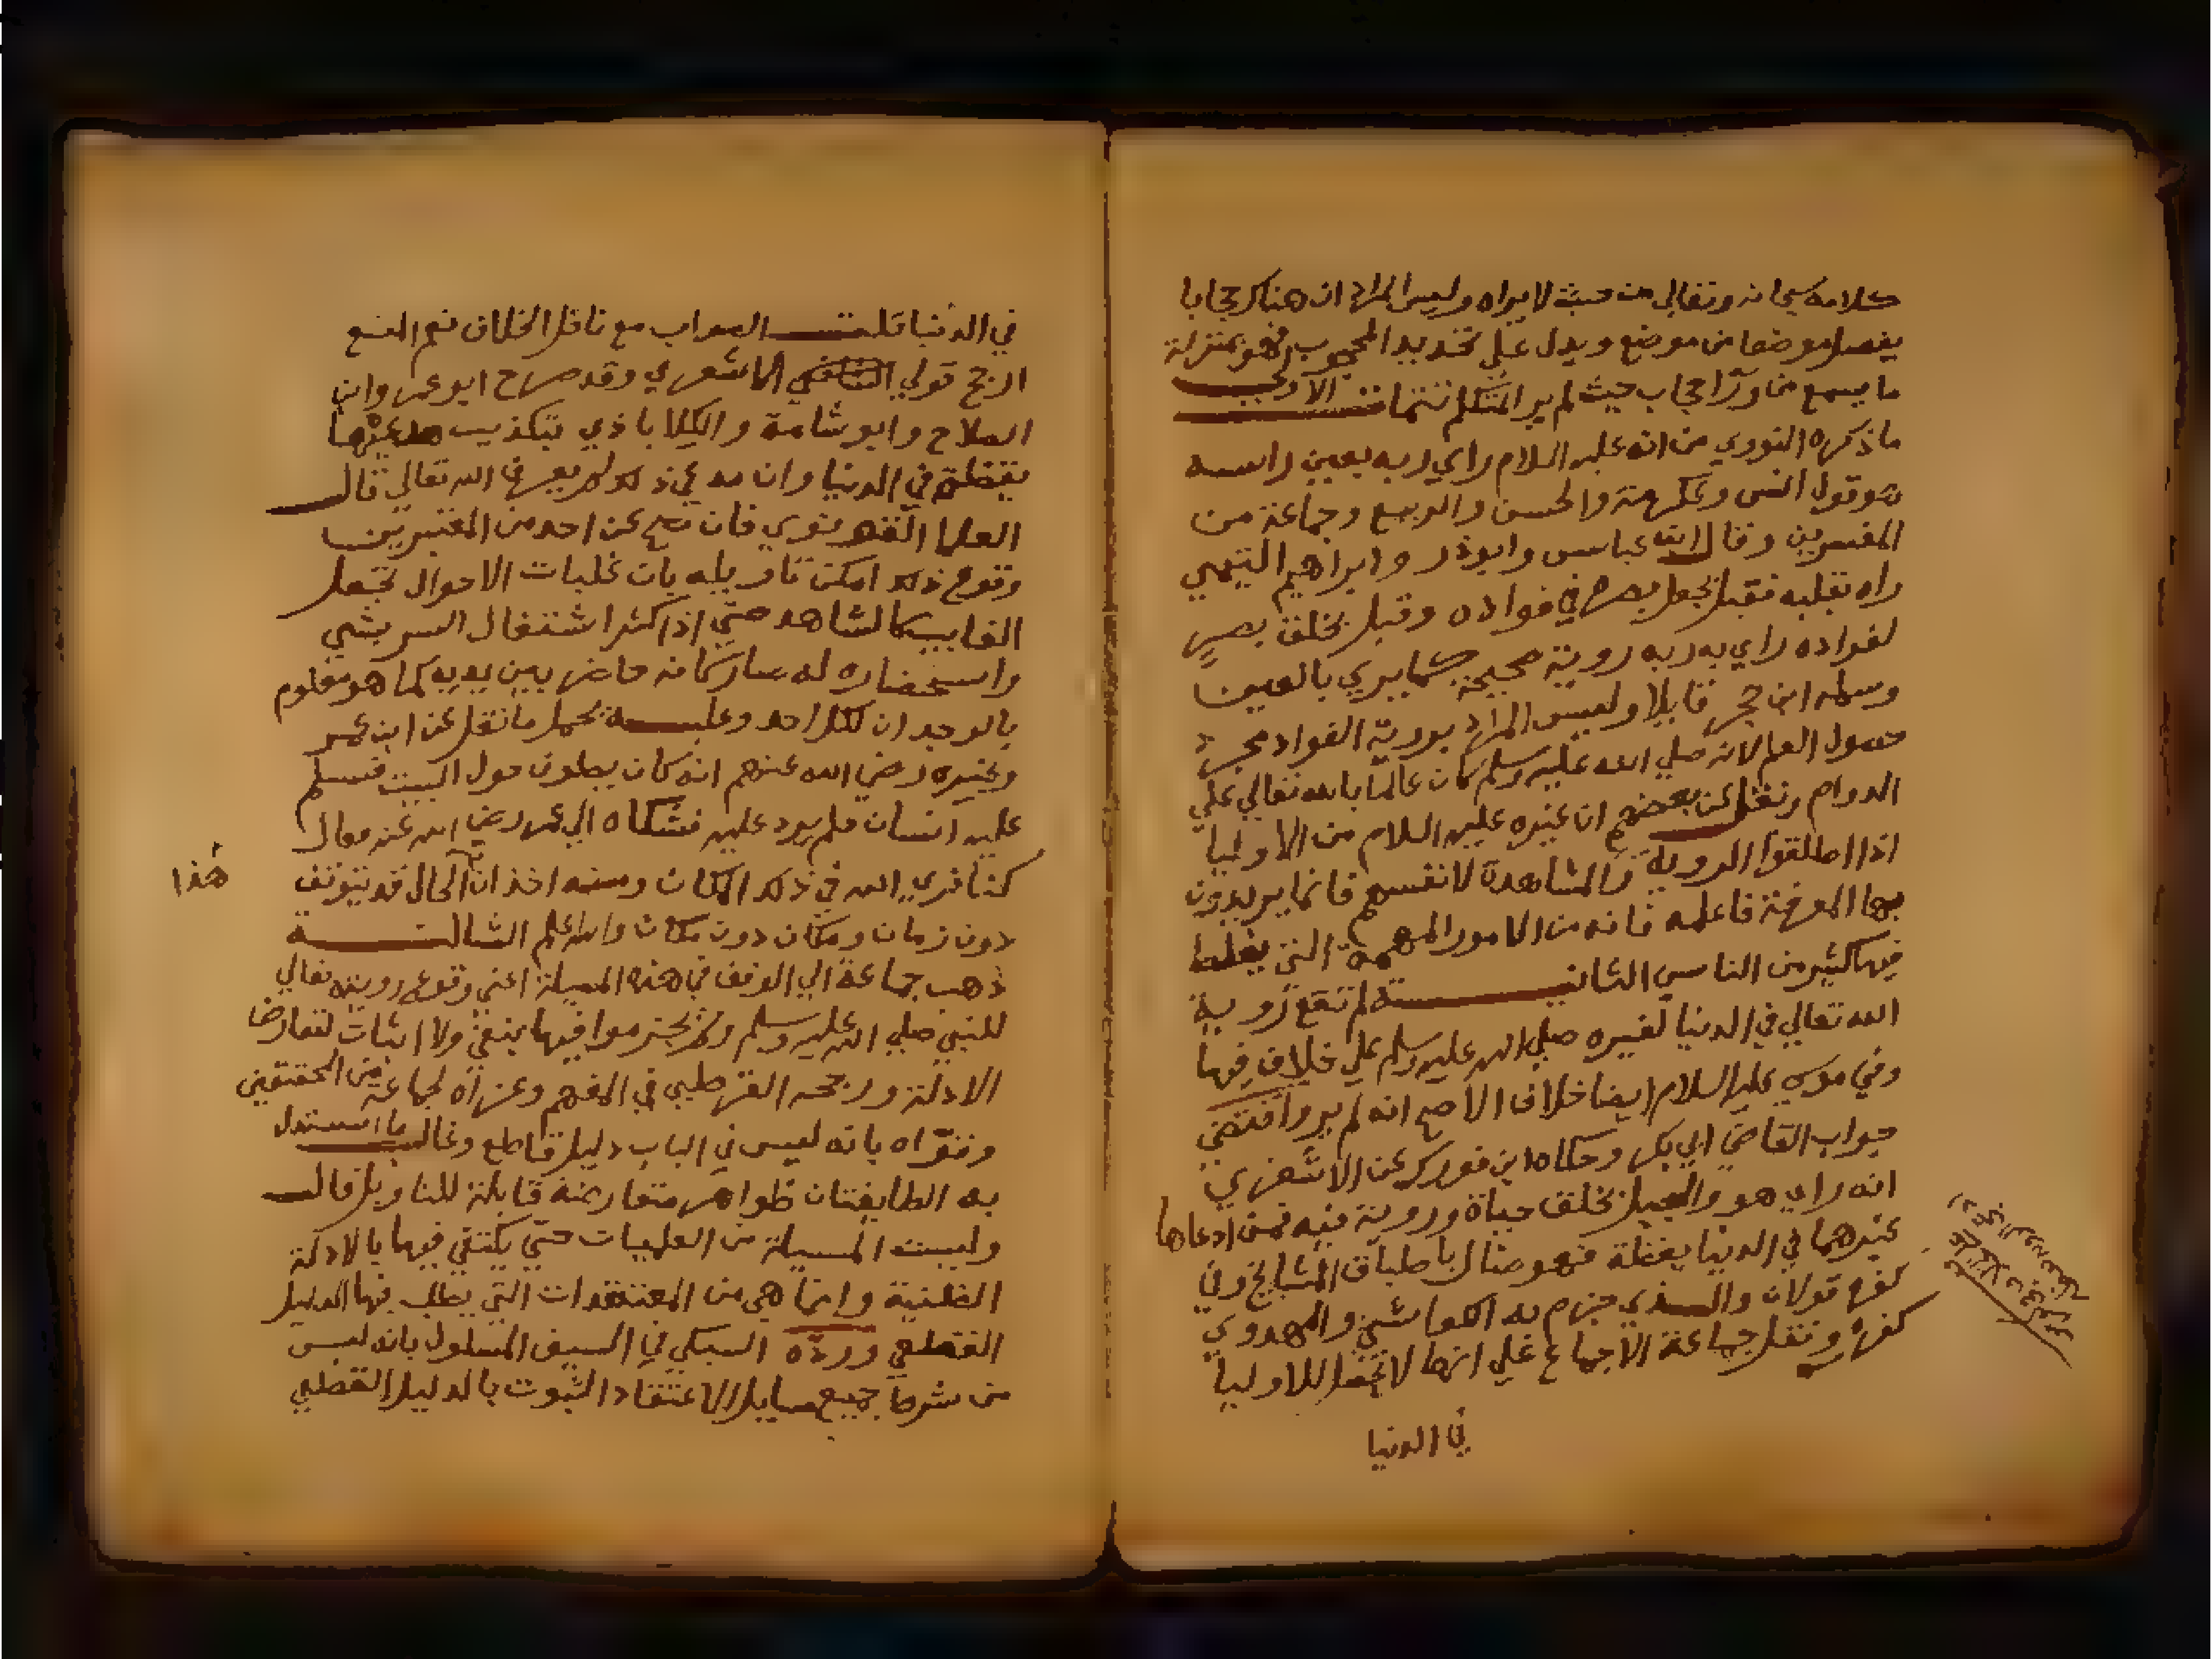 كلامه سبحانه وتعالى من حيث لا يراه وليس المراد ان هناك حجابا
يفصل موضعا من موضع ويدل على تحديد المحجوب فهو بمنزلة
ما يسمع من ورآ حجاب حيث لم ير المتكلم تتمات الاولى
ما ذكره النووي من انه عليه السلام راي ربه بعين راسه
هو قول انس وعكرمة والحسن والربيع وجماعة من
المفسرين وقال ابن عباس وابوذر وابراهيم التيمي
راه بقلبه فقيل بجعل بصره في فواده وقيل بخلق بصر
لفواده راي به ربه روية صحيحة كما يري بالعين
وسلمه ابن حجر قايلا وليس المراد بروية الفواد مجرد
حصول العلم لانه صلي الله عليه وسلم كان عالما بالله تعالي علي
الدوام ونقل عن بعضهم ان غيره عليه السلام من الاوليا
اذا اطلقوا الروية والمشاهدة لانفسهم فانما يريدون
بها المعرفة فاعلمه فانه من الامور المهمة التي يغلط
فيها كثير من الناس الثانية لم تقع روية
الله تعالي في الدنيا لغيره صلي الله عليه وسلم علي خلاف فيها
وفي موسي عليه السلام ايضا خلاف الاصح انه لم ير واقتضي
جواب القاضي ابي بكر وحكاه ابن فورك عن الاشعري
انه راي هو والجبل بخلق حياة وروية فيه فمن ادعاها
غيرهما في الدنيا يقظة فهو ضال باطباق المشايخ وفي
كفره قولان والذي جزم به الكواشي والمهدوي
كفره ونقل جماعة الاجماع علي انها لا تحصل للاوليا
في الدنيا
في الدنيا قلت الصواب مع ناقل الخلاف نعم المنع
ارجح قولي الاشعري وقد صرح ابو عمر وابن
الصلاح وابو شامة والكلاباذي بتكذيب مدعيها
يقظة في الدنيا وان مدعي ذلك لم يعرف الله تعالي قال
العلا القونوي فان صح عن احد من المعتبرين
وقوع ذلك امكن تاويله بان غلبات الاحوال تجعل
الغايب كالشاهد حتي اذا كثر اشتغال السر بشي
واستحضاره له صار كانه حاضر بين يديه كما هو معلوم
بالوجدان لكل احد وعليه يحمل ما نقل عن ابن عمر
وغيره رضي الله عنهم انه كان يطوف حول البيت فسلم
عليه انسان فلم يرد عليه فشكاه الي عمر رضي الله عنه فقال
كنا نري الله في ذلك المكان ومنه اخذ ان الحال قد يتوقف
هذا
دون زمان ومكان دون مكان والله اعلم الثالثة
ذهب جماعة الي الوقف في هذه المسيلة اعني وقوع رويته تعالي
للنبي صلي الله عليه وسلم ولم يجزموا فيها بنفي ولا اثبات لتعارض
الادلة ورجحه القرطبي في المفهم وعزاه لجماعة من المحققين
وقواه بانه ليس في الباب دليل قاطع وغالب ما استدل
به الطايفتان ظواهر متعارضة قابلة للتاويل قال
وليست المسيلة من العمليات حتي يكتفي فيها بالادلة
الظنية وانما هي من المعتقدات التي يطلب فيها الدليل
القطعي ورده السبكي في السيف المسلول بانه ليس
من شرط جميع مسايل الاعتقاد الثبوت بالدليل القطعي